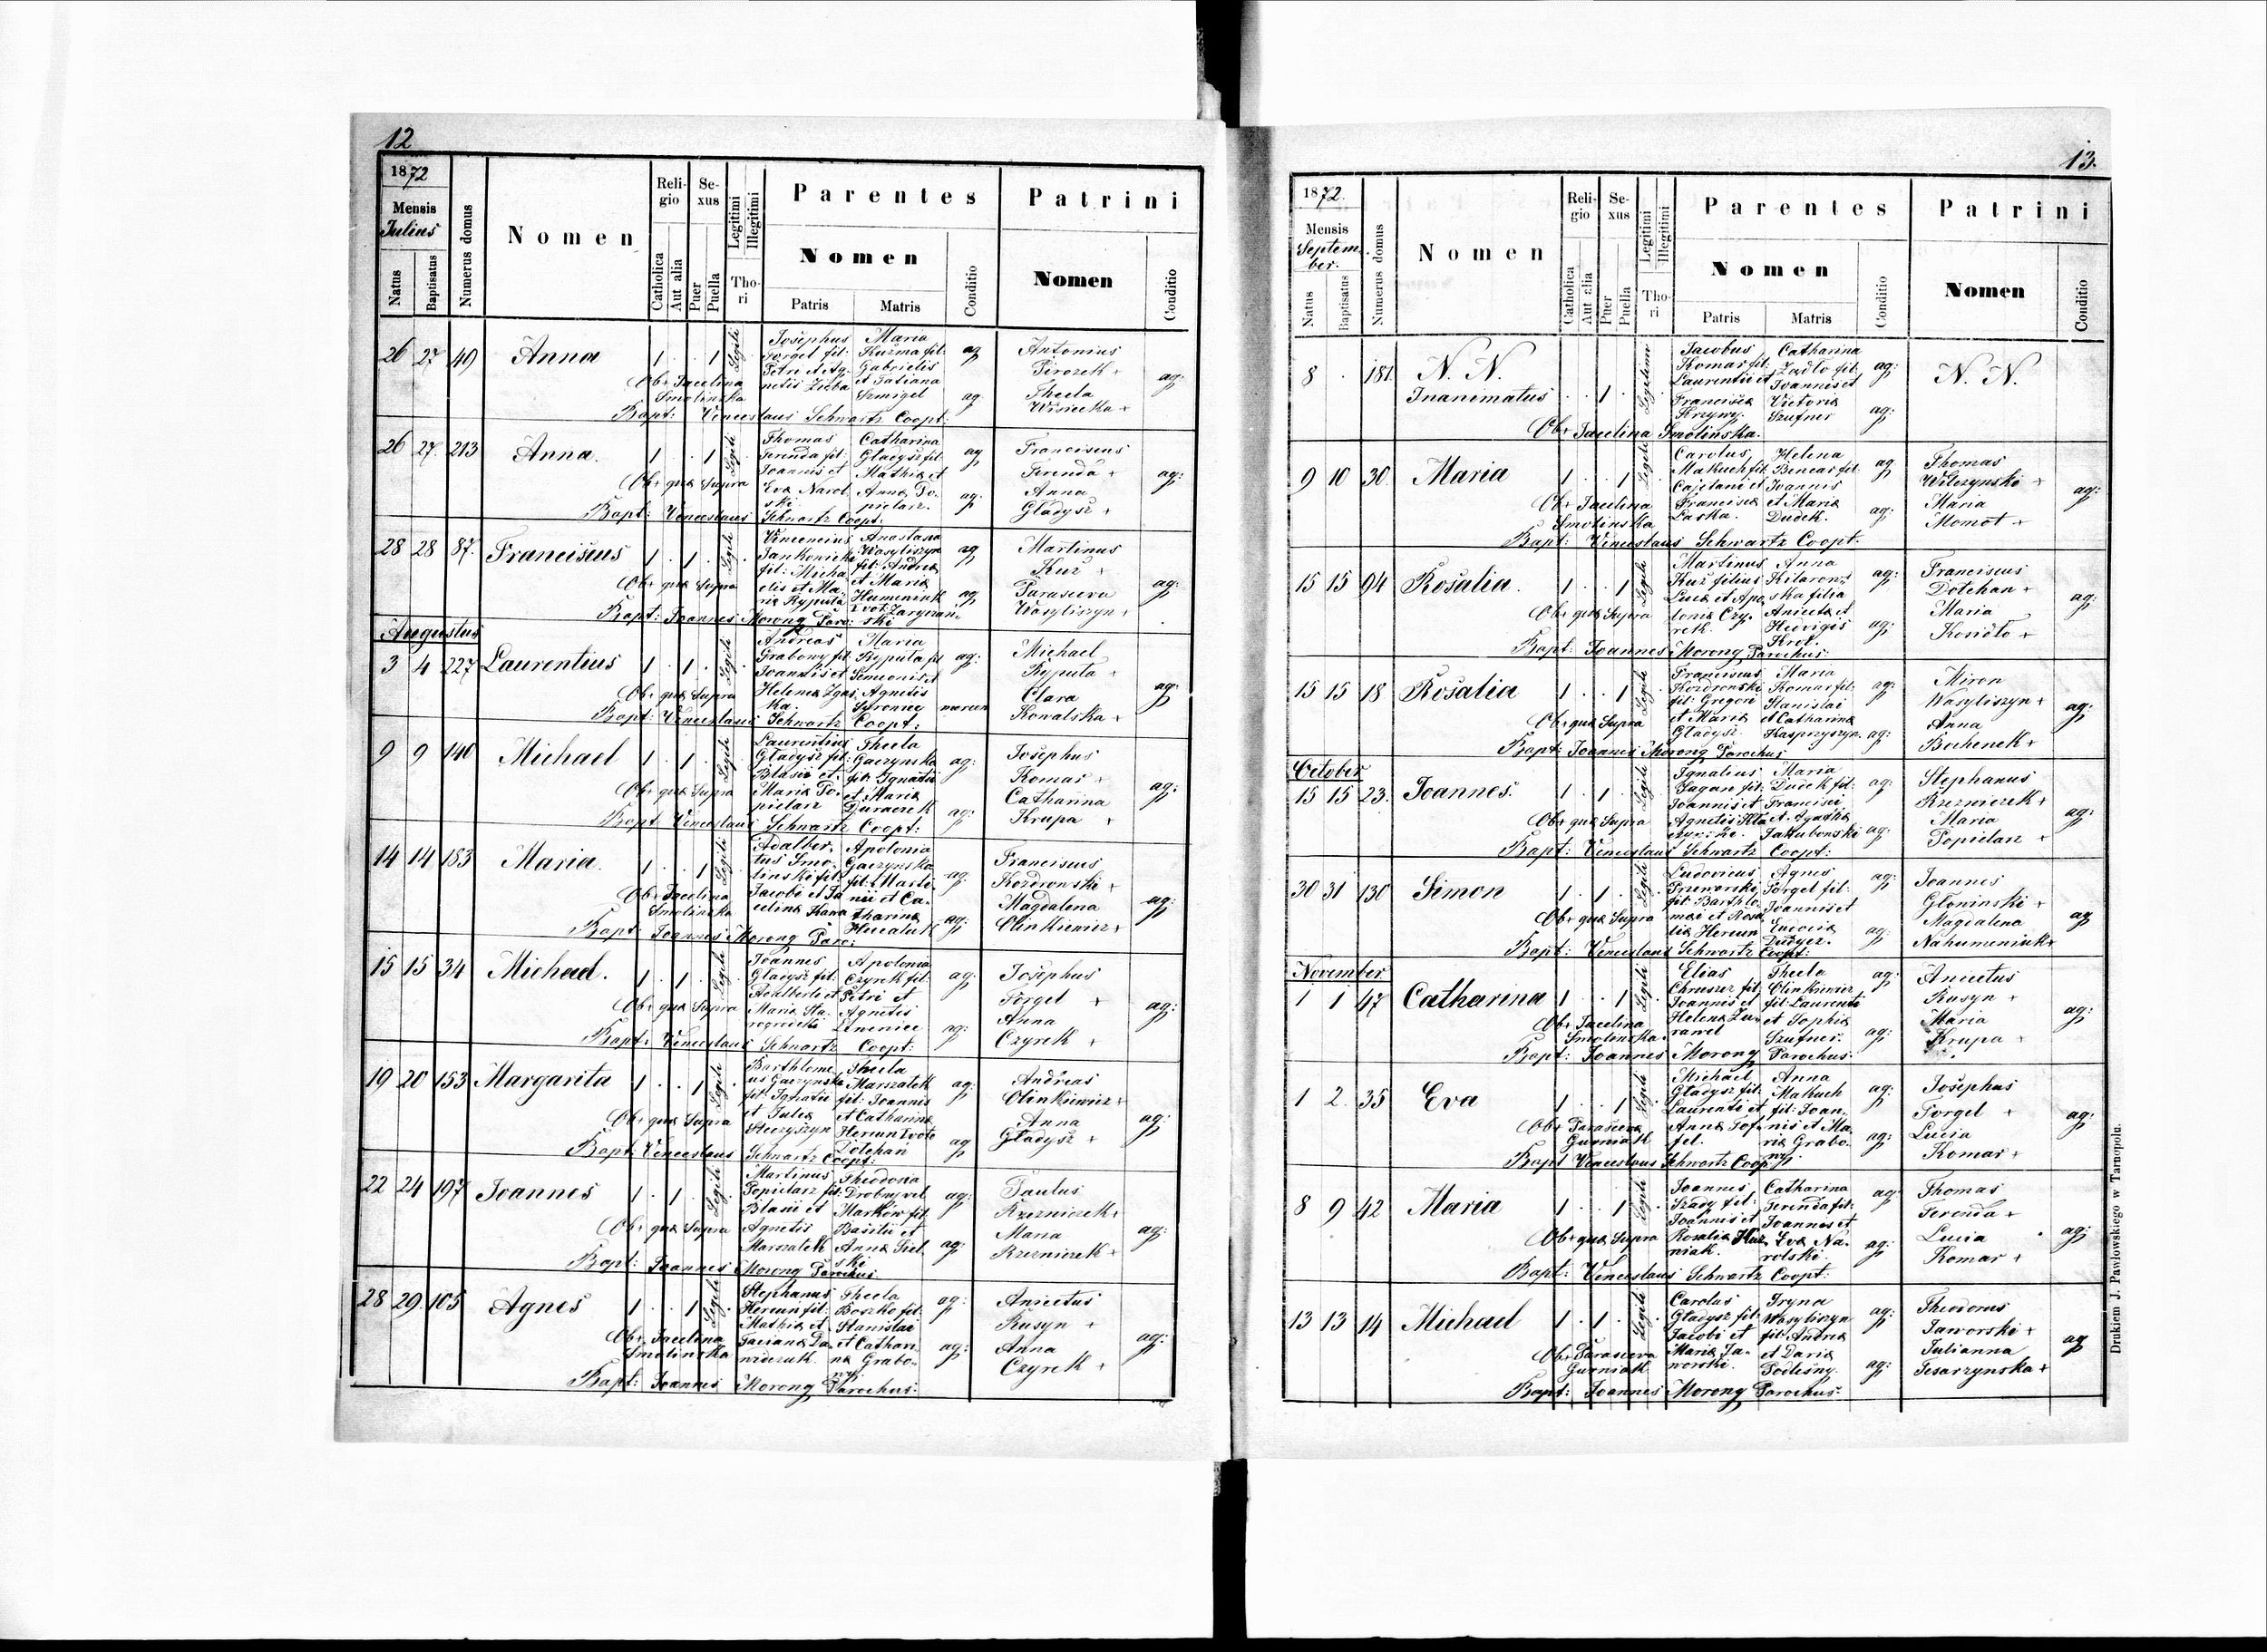 12
1872
Mensis
Julius
Natus
Baptisatus
Numerus domus
Nomen
Religio
Catholica
Aut alia
Sexus
Puer
Puella
Legitimi
Illegitimi
Thori
Parentes
Nomen
Patris
Matris
Conditio
Patrini
Nomen
Conditio
26 27 49 Anna 1 . . 1 Legiti
Josephus Forgel fil: Petri et Agnetis Zieba
Maria Kuzma fil: Gabrielis et Tatiana Szmigel
ag ag:
Antonius
Pirozek +
Thecla
ag:
Obs: Jacelina Smolinska
Bapt: Venceslaus Schwartz Coopt:
26 27. 213 Anna. 1 . . 1 Legiti
Thomas Ferenda fil: Joannis et Eva Narolski
Catharina Gladysz fil: Mathiæ et Anna Popielarz.
ag ag:
Franciscus
Ferenda +
Anna
Gladysz +
ag:
Obs: quæ Supra
Bapt: Venceslaus Schwartz Coopt:
28 28 87. Franciscus 1 . 1 . Legiti
Vincencius
fil: Michaelis et Maria Ryputa
Anastasia Wasyliszyn fil: Andreæ et Maria
ag ag
Martinus
Kuz +
Parasceva
Wasyliszyn +
ag:
Obs: quæ Supra
Bapt: Joannes Morong Paro:
Augustus
3 4 227 Laurentius 1 . 1 . Legiti
Andreas Grabowy fil: Joannis et Helena
Maria Ryputa fil Simeonis et Agnetis
ag:
Michael
Ryputa +
Clara
Konalska +
ag:
Obs: quæ Supra
Bapt: Venceslaus Schwartz Coopt:
9 9 140 Michael 1 . 1 . Legiti
Laurentius Gladysz fil: Blasii et Maria Popielarz
Thecla Gaczynska fil: Ignatii et Maria
ag: ag:
Josephus
Komar +
Catharina
Krupa +
ag:
Obs: quæ Supra
Bapt: Venceslaus Schwartz Coopt:
14 14 183 Maria. 1 . . 1 Legiti
Adalbertus Smolinski fil: Jacobi et Jacelina
Apolonia Gaczynska fil: Martini et Catharina Hucaluk
ag: ag:
Franciscus
Kozdrowski +
Magdalena
Olinkiewicz +
ag:
Obs: Jacelina Smolinska
Bapt: Joannes Morong Paro:
15 15 34 Michael. 1 . 1 . Legiti
Joannes Gladysz fil: Adalberti et Maria
Apolonia Czyrek fil: Petri et Agnetis
ag: ag:
Josephus
Forgel +
Anna
Czyrek +
ag:
Obs: quæ Supra
Bapt: Venceslaus Schwartz Coopt:
19 20 153 Margarita 1 . . 1 Legiti
Bartholomeus Gaczynski fil: Ignatii et Julia
Thecla Marszalek fil: Joannis et Catharina Hereun Dolchan
ag: ag
Andreas
Olinkiewicz +
Anna
Gladysz +
ag:
Obs: quæ Supra
Bapt: Venceslaus Schwartz Coopt:
22 24 197 Joannes 1 . 1 . Legiti
Martinus Popielarz fil: Blasii et Agnetis Marszalek
Theodosia Drobny vel Markow fil: Basilii et Anna
ag: ag:
Paulus
Rzezniczek +
Maria
Rzezniczek +
ag:
Obs: quæ Supra
Bapt: Joannes Morong Parochus
28 29 105 Agnes 1 . . 1 Legiti
Stephanus Hereun fil: Mathiæ et
Thecla Boszko fil: Stanislai et Catharina Grabowy
ag: ag:
Anicetus
Rusyn +
Anna
Czyrek +
ag:
Obs: Jacelina Smolinska
Bapt: Joannes Morong Parochus:
13.
1872.
Mensis
September.
Natus
Baptisatus
Numerus domus
Nomen
Religio
Catholica
Aut alia
Sexus
Puer
Puella
Legitimi
Illegitimi
Thori
Parentes
Nomen
Patris
Matris
Conditio
Patrini
Nomen
Conditio
8 . 181. N. N. Inanimatus . . 1 . Legitimi
Jacobus Komar fil: Laurentii et Francisca Krzywy.
Catharina Zadlo fil: Joannis et Victoria Szufner
ag: ag:
N. N.
Obs: Jacelina Smolinska.
9 10 30. Maria 1 . . 1 Legiti
Carolus Makuch fil: Cajetani et Francisca Laska.
Helena Bencar fil: Joannis et Maria Dudek.
ag ag:
Thomas
Wilczynski +
Maria
Momot +
ag:
Obs: Jacelina Smolinska
Bapt: Venceslaus Schwartz Coopt:
15 15 94 Rosalia. 1 . . 1 Legiti
Martinus Kuz filius Lucæ et Apolonia Czyrek.
Anna filia Aniceta et Hedvigis Krol.
ag: ag:
Franciscus
Dolchan +
Maria
+
ag:
Obs: quæ Supra
Bapt: Joannes Morong Parochus:
15 15 18 Rosalia 1 . . 1 Legiti
Franciscus Kozdrowski fil: Gregorii et Maria Gladysz.
Maria Komar fil: Stanislai et Catharina Kasprzyszyn.
ag: ag:
Miron
Wasyliszyn +
Anna
Buchenek +
ag:
Obs: quæ Supra
Bapt: Joannes Morong Parochus
October
15 15 23. Joannes. 1 . 1 . Legiti
Ignatius Fagan fil: Joannis et Agnetis
Maria Dudek fil: Francisci et Jakubowski
ag: ag:
Stephanus
Rzezniczek +
Maria
Popielarz +
ag:
Obs: quæ Supra
Bapt: Venceslaus Schwartz Coopt:
30 31 130 Simon 1 . 1 . Legiti
Ludovicus fil: Bartholomæi et Rosalia Hereun
Agnes Forgel fil: Joannis et
ag: ag:
Joannes
Glowinski +
Magdalena
Nahumeniuk +
ag
Obs: quæ Supra
Bapt: Venceslaus Schwartz Coopt:
November
1 1 47 Catharina 1 . . 1 Legiti
Elias fil: Joannis et Helena
Thecla Olinkiewicz fil: Laurentii et Sophia Szufner.
ag: ag:
Anicetus
Rusyn +
Maria
Krupa +
ag:
Obs: Jacelina Smolinska.
Bapt: Joannes Morong Parochus:
1 2. 35 Eva 1 . . 1 Legiti
Michael Gladysz fil: Laurentii et Anna
Anna Makuch fil: Joannis et Maria Grabowy.
ag: ag:
Josephus
Forgel +
Lucia
Komar +
ag:
Obs: Parasceva Gurniak
Bapt Venceslaus Schwartz Coop
8 9 42 Maria 1 . . 1 Legiti
Joannes Szady fil: Joannis et Rosalia
Catharina Ferenda fil: Joannis et Eva Narolski.
ag ag:
Thomas
Ferenda +
Lucia
Komar +
ag:
Obs: quæ Supra
Bapt: Venceslaus Schwartz Coopt:
13 13 14 Michael 1 . 1 . Legiti
Carolus Gladysz fil: Jacobi et Maria Jaworski.
Iryna Wasyliszyn fil: Andreæ et Daria Podlesny.
ag: ag:
Theodorus
Jaworski +
Julianna
Tesarzynska +
ag
Obs: Parasceva Gurniak.
Bapt: Joannes Morong Parochus:
Drukiem J. Pawłowskiego w Tarnopolu.